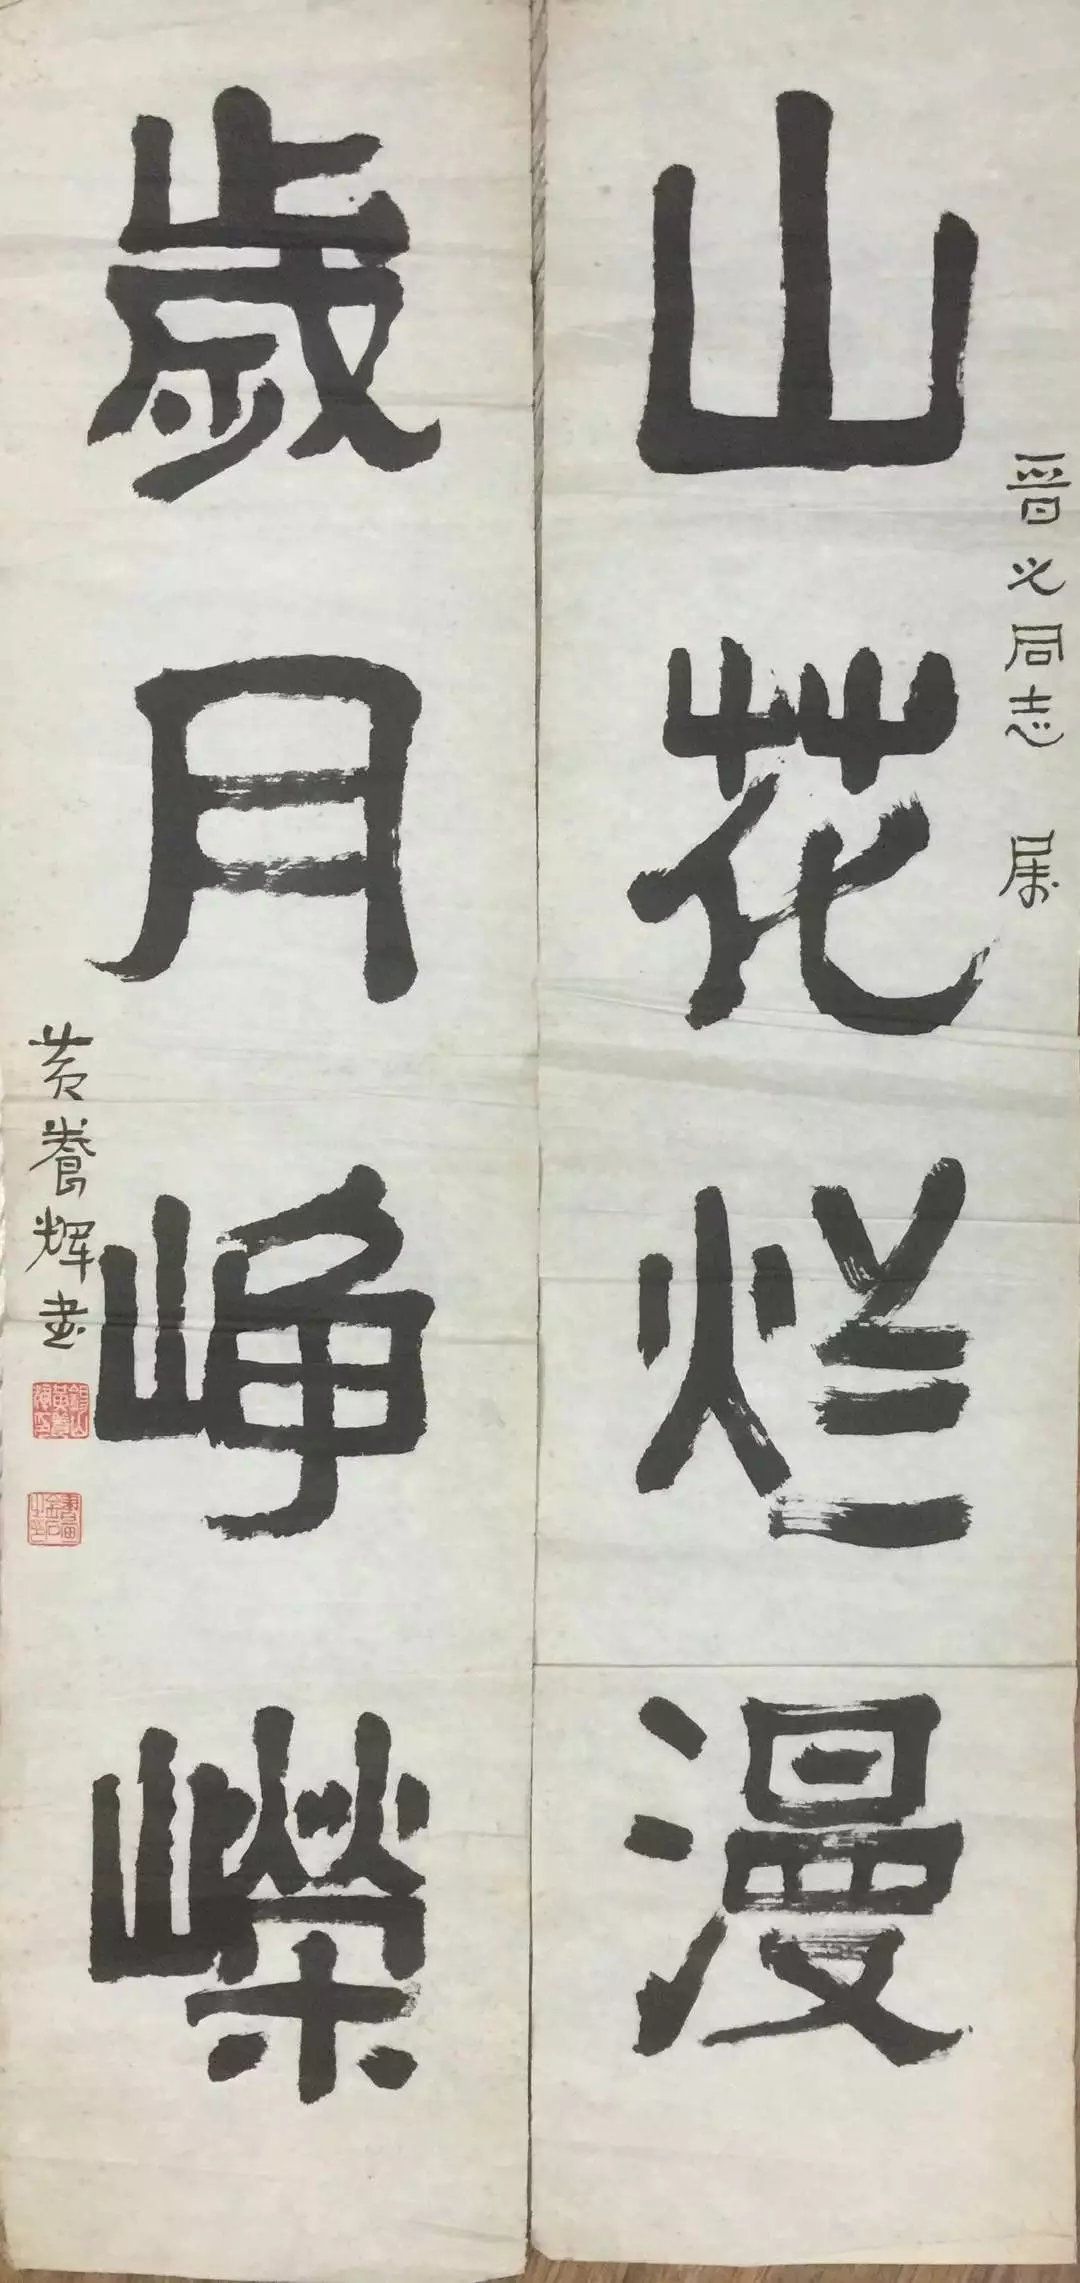 山花烂漫
晋之同志 属
歲月峥嶸
黄養辉书